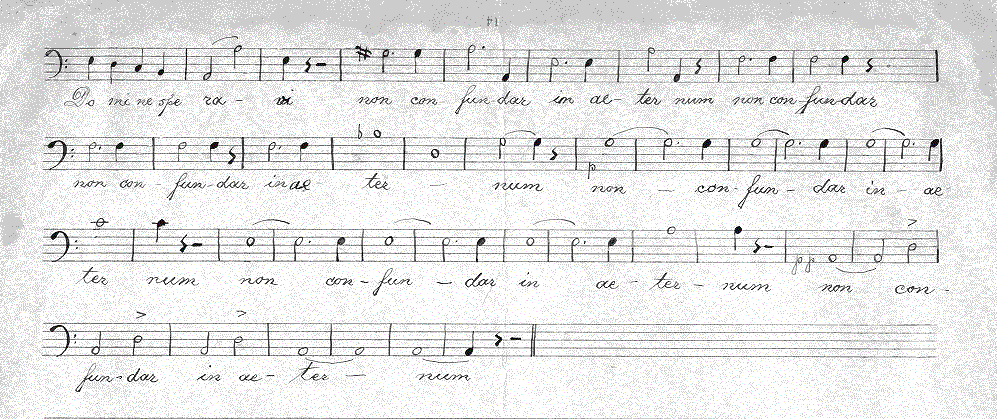 14
Do mi ne spe ra - vi non con fun dar in ae - ter num non con - fun - dar
non con - fun - dar in ae ter - num non - con - fun - dar in - ae
ter num non con - fun - dar in ae - ter - num non con -
fun - dar in ae - ter - num